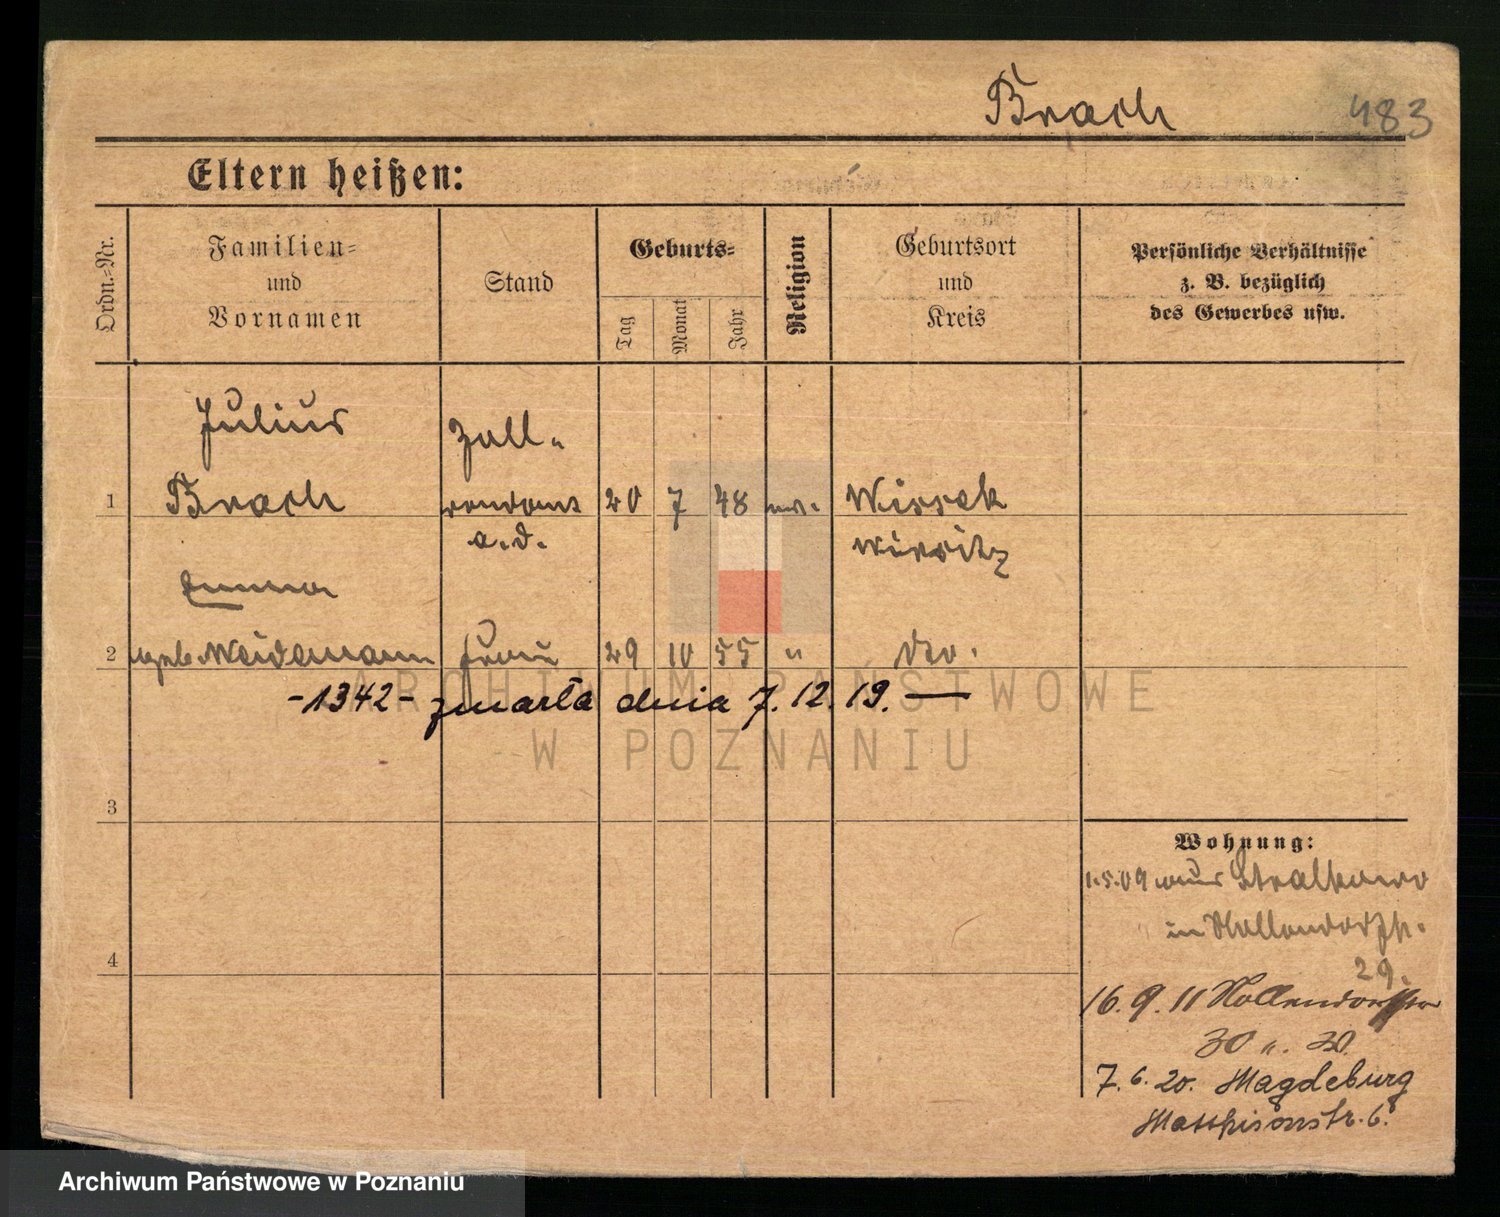 Brach 483
Eltern heißen:
Ordn.-Nr.
Familien-
und
Vornamen
Stand
Geburts-
Tag
Monat
Jahr
Religion
Geburtsort
und
Kreis
Persönliche Verhältnisse
z. B. bezüglich
des Gewerbes usw.
Julius
Zoll-
1 Brach rendant 20 7 48 ev. Wissek
a. D. Wirsitz
Emma
2 geb. Weidemann Frau 29 10 55 " do.
-1342- zmarła dnia 7. 12. 19. —
3
4
Wohnung:
1.5.09 aus Stralkowo
in Hollendorfstr.
29.
16. 9. 11 Hollendorfstr
30
7. 6. 20. Magdeburg
Matthisonstr. 6.
ARCHIWUM PAŃSTWOWE
W POZNANIU
Archiwum Państwowe w Poznaniu